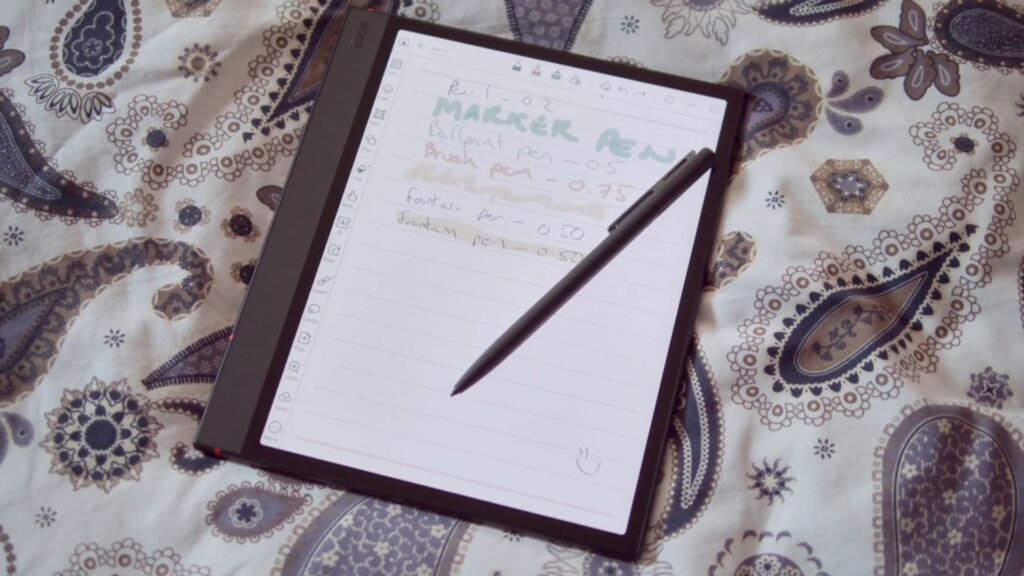 BOOX
Pencil - 0.2
MARKER PEN
Ballpoint pen - 0.5
Brush pen - 0.75
fountain pen - 0.50
fountain pen - 0.50